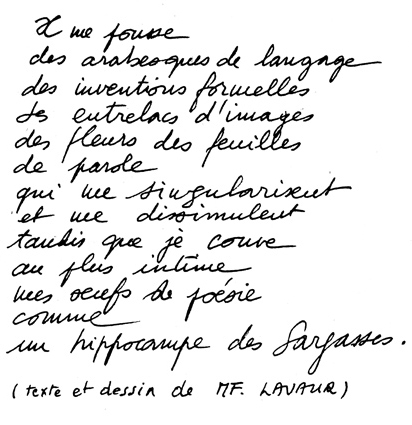 Il me pousse
des arabesques de langage
des inventions formelles
des entrelacs d'images
des fleurs des feuilles
de parole
qui me singularisent
et me dissimulent
tandis que je couve
au plus intime
mes oeufs de poésie
comme
un hippocampe des Sargasses.
(texte et dessin de MF. LAVAUR)